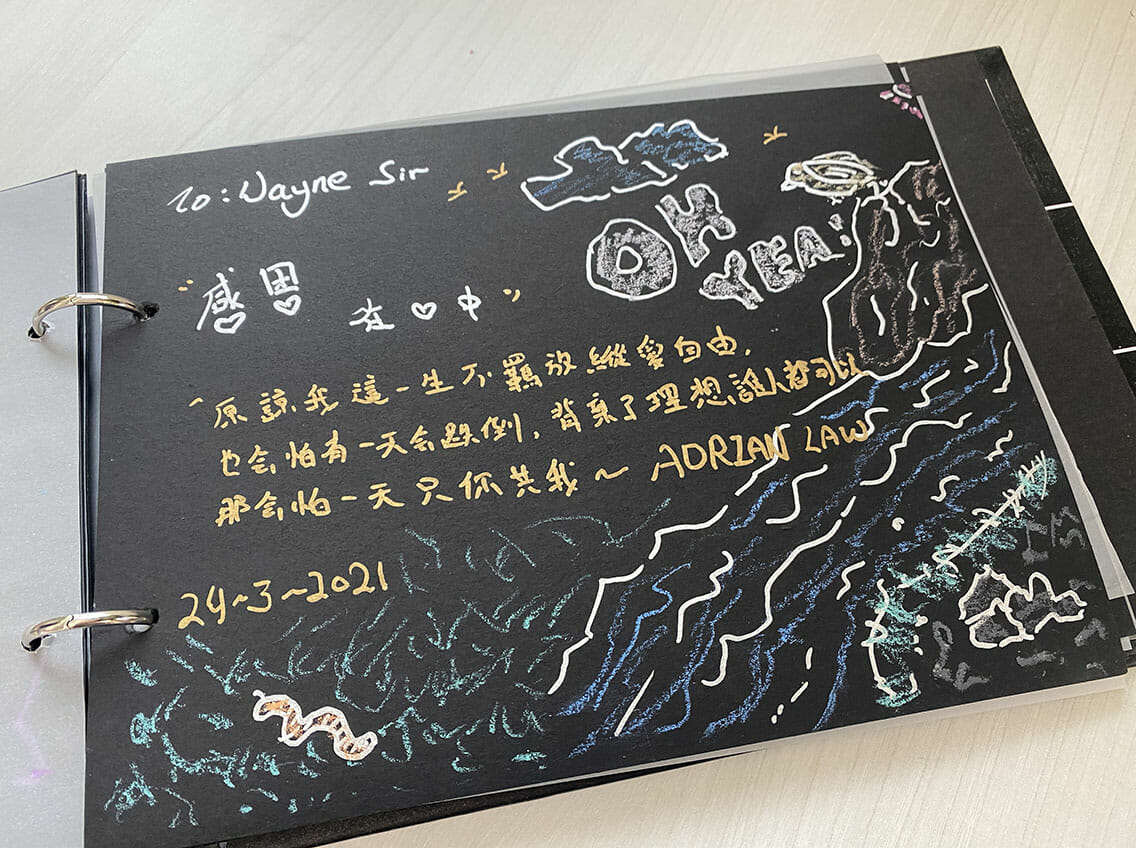 To: Wayne Sir
OH
YEA!
"感恩 在♡中"
"原諒我這一生不羈放縱愛自由,
也会怕有一天会跌倒,背棄了理想,誰人都可以
那会怕一天只你共我~ ADRIAN LAW
24~3~2021